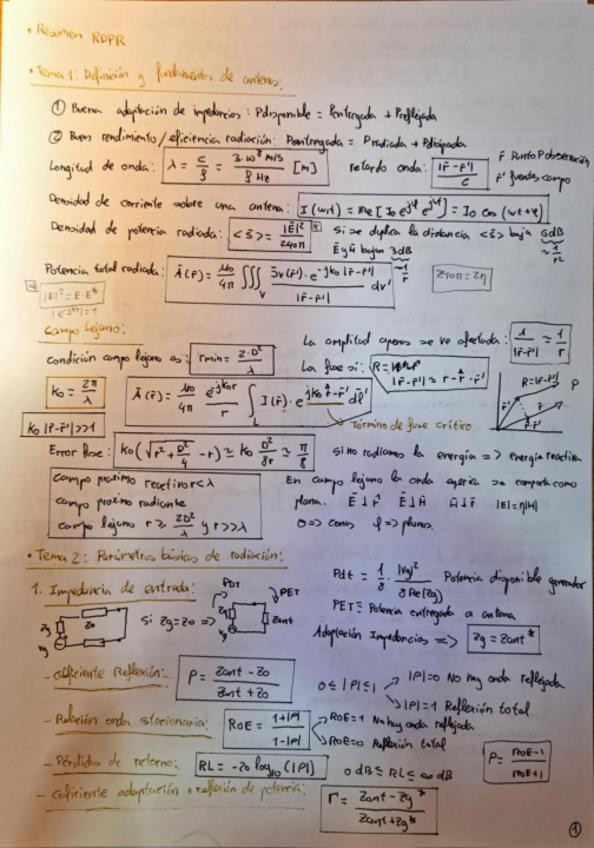 • Resumen RDPR
• Tema 1: Definición y fundamentos de antenas:
① Buena adaptación de impedancias: Pdisponible = Pentregada + Preflejada
② Buen rendimiento/eficiencia radiación: Pentregada = Pradiada + Pdisipada
Longitud de onda: λ = c/f = 3·10⁸ m/s / f Hz [m] retardo onda: |r̄-r̄'|/c r̄ Punto P observación
r̄' fuentes campo
Densidad de corriente sobre una antena: I(w,t) = Re[I₀ e^jφ e^jwt] = I₀ cos(wt+φ)
Densidad de potencia radiada: <s̄> = |Ē|²/240π si se duplica la distancia <s̄> baja 6dB ~ 1/r²
Ē y H̄ bajan 3dB ~ 1/r
Potencia total radiada: Ā(r̄) = μ₀/4π ∭v J̄v(r̄')·e^-jk₀|r̄-r̄'| / |r̄-r̄'| dv' 240π = 2η
|E|² = E·E*
|e^-jkr| = 1
Campo lejano:
La amplitud apenas se ve afectada: 1/|r̄-r̄'| ≈ 1/r
Condición campo lejano es: rmin = 2·D²/λ
La fase sí: R = |r̄-r̄'| ≈ r - r̂·r̄'
k₀ = 2π/λ Ā(r̄) = μ₀/4π e^-jk₀r/r ∫L I(r̄')·e^jk₀ r̂·r̄' dl̄' R=|r̄-r̄'| P
k₀|r̄-r̄'| >> 1 Término de fase crítico
Error fase: k₀(√(r²+D²/4) - r) ≃ k₀ D²/8r ≃ π/8 si no radiamos la energía => energía reactiva
campo próximo reactivo r<λ
campo próximo radiante
campo lejano r ≥ 2D²/λ y r>>λ
En campo lejano la onda esférica se comporta como
plana. Ē⊥r̄ Ē⊥H̄ H̄⊥r̄ |E|=η|H|
θ => conos φ => planos.
• Tema 2: Parámetros básicos de radiación:
1. Impedancia de entrada:
Pdt = 1/8 · |Vg|²/Re(Zg) Potencia disponible generador
PDT PET
Zg Z₀ Vg si Zg=Z₀ => Zg Zant
PET ≡ Potencia entregada a antena
Adaptación Impedancias => Zg = Zant*
- Coeficiente Reflexión: ρ = Zant - Z₀ / Zant + Z₀ 0 ≤ |ρ| ≤ 1
|ρ|=0 No hay onda reflejada
|ρ|=1 Reflexión total
- Relación onda estacionaria: ROE = 1+|ρ| / 1-|ρ|
ROE=1 No hay onda reflejada
ROE=∞ Reflexión total
- Pérdidas de retorno: RL = -20 log₁₀(|ρ|) 0 dB ≤ RL ≤ ∞ dB ρ = ROE-1 / ROE+1
- Coeficiente adaptación o reflexión de potencia: Γ = Zant - Zg* / Zant + Zg*
①